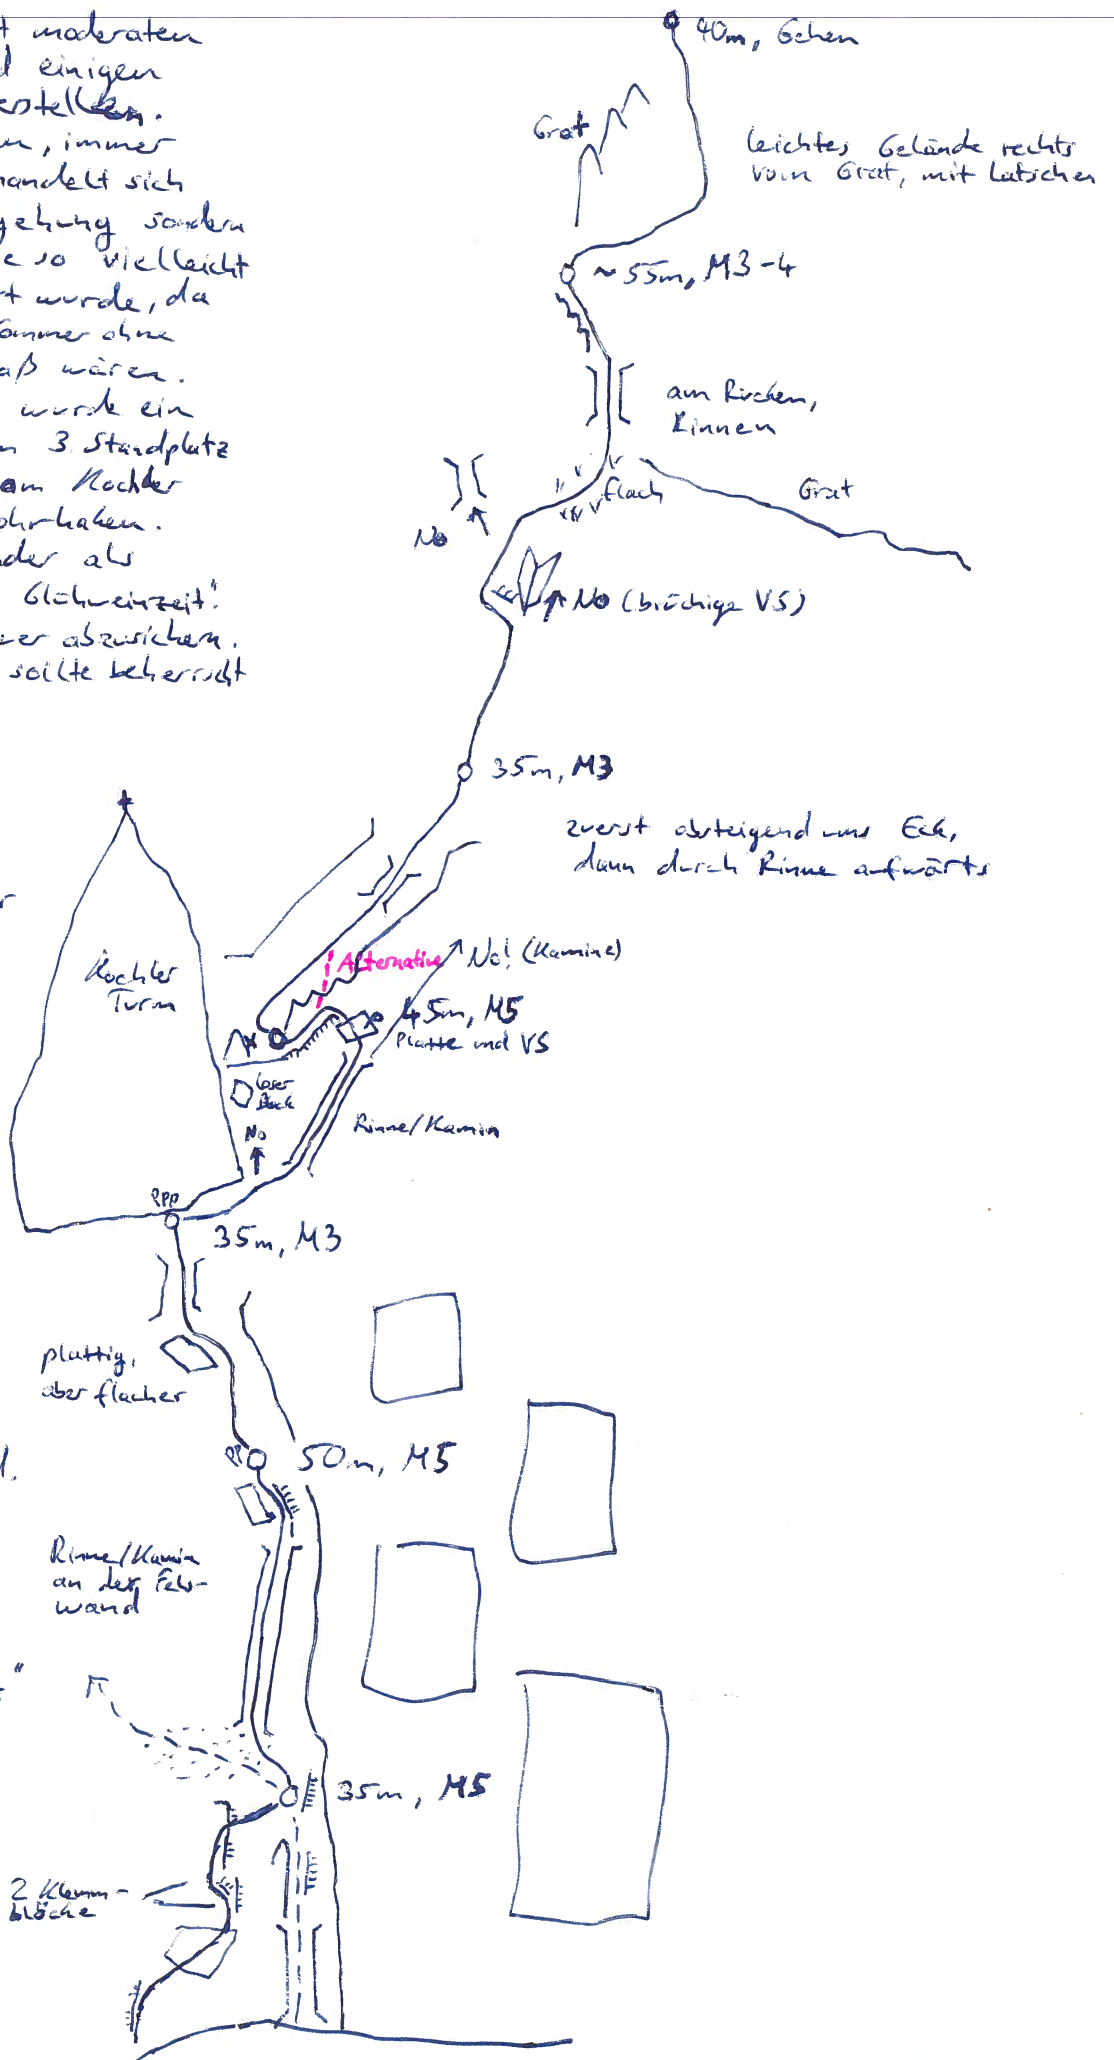 moderaten
einigen
erstellen.
, immer
handelt sich
gehung sondern
e so vielleicht
t wurde, da
ohne
aß wären.
wurde ein
3. Standplatz
am Kochler
ohrhaken.
der als
Glühweinzeit".
er abzusichern.
sollte beherrscht
40m, Gehen
Grat
leichtes Gelände rechts
vom Grat, mit Latschen
~55m, M3-4
am Rücken,
Rinnen
flach
Grat
No
No (brüchige VS)
35m, M3
zuerst absteigend ums Eck,
dann durch Rinne aufwärts
Kochler
Turm
Alternative
No! (Kamine)
45m, M5
Platte und VS
loser
Block
No
Rinne/Kamin
PPP
35m, M3
plattig,
aber flacher
PP
50m, M5
Rinne/Kamin
an der Fels-
wand
35m, M5
2 Klemm-
blöcke